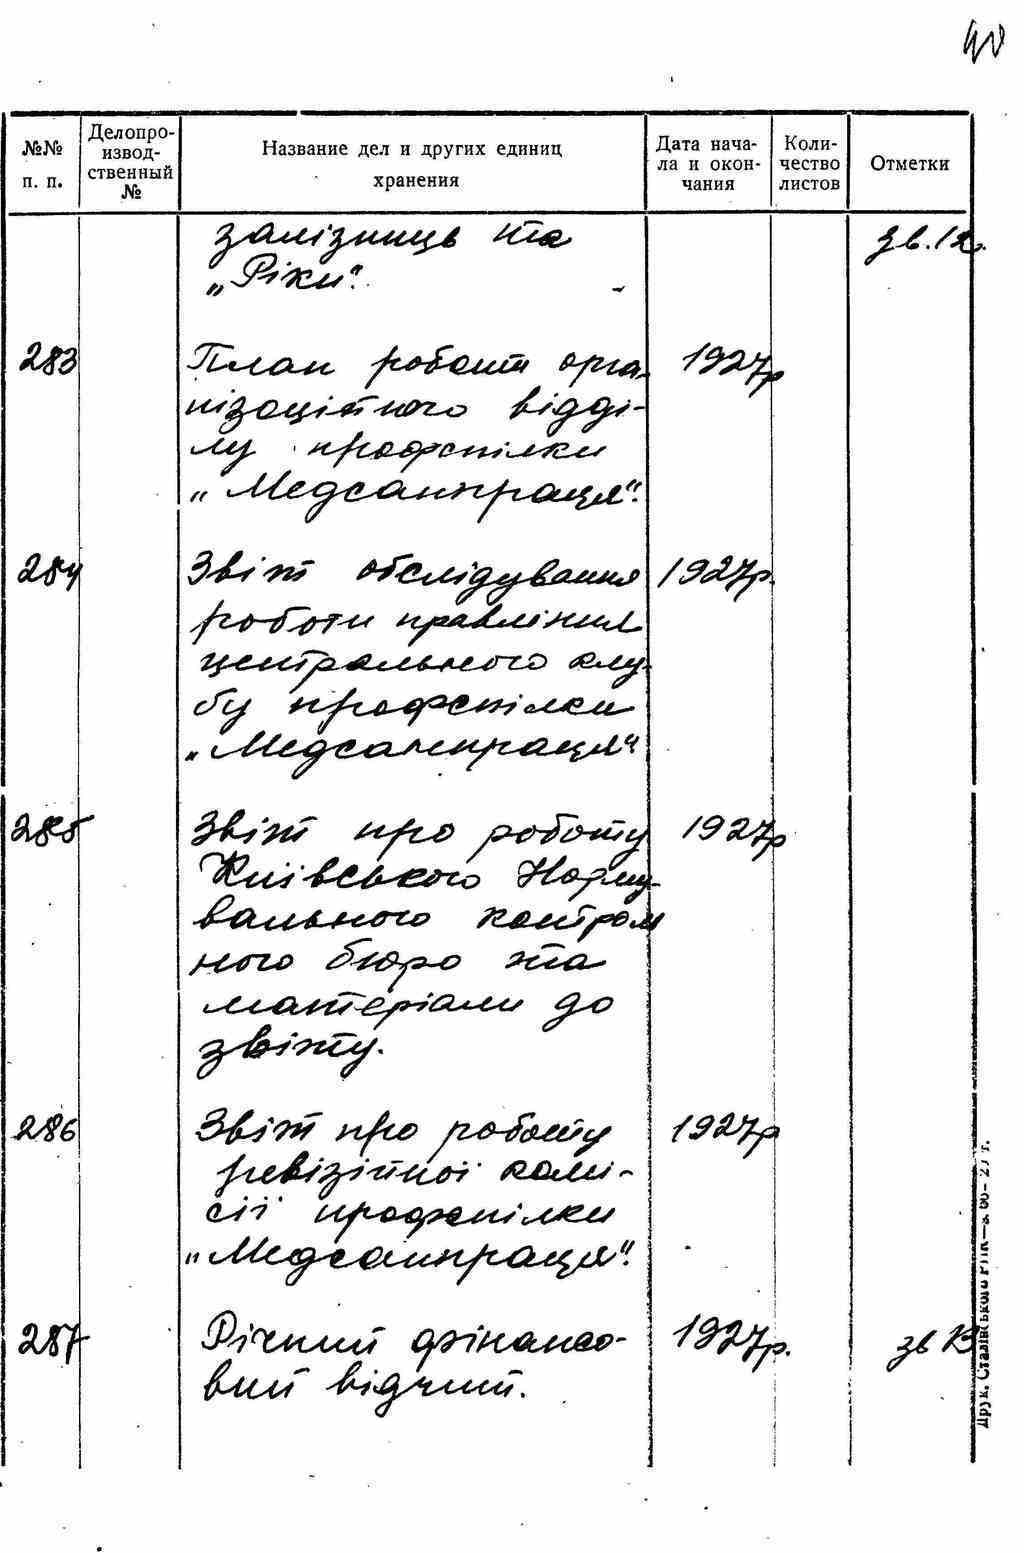 40
№№ п. п.
Делопро-
извод-
ственный
№
Название дел и других единиц
хранения
Дата нача-
ла и окон-
чания
Коли-
чество
листов
Отметки
залізниць та
„Ріки".
283 План роботи орга- 1927р
нізаційного відді-
лу профспілки
„Медсанпраця".
284 Звіт обслідування 1927р.
роботи правління
центрального клу-
бу профспілки
„Медсанпраця"
285 Звіт про роботу 1927р
Київського Норму-
вального контроль
ного бюро та
матеріали до
звіту.
286 Звіт про роботу 1927р
ревізійної комі-
сії профспілки
„Медсанпраця".
287 Річний фінансо- 1927р.
вий відчит.
Друк. Сталінського